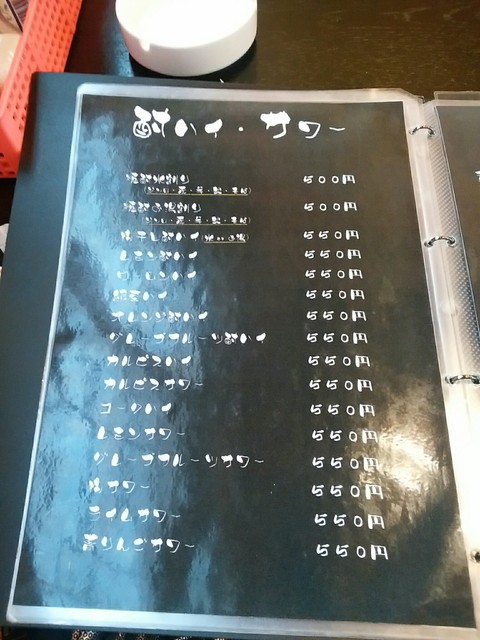 酎ハイ・サワー
焼酎水割り 500円
焼酎お湯割り 500円
梅干し酎ハイ 550円
レモン酎ハイ 550円
ウーロンハイ 550円
550円
オレンジ酎ハイ 550円
グレープフルーツ酎ハイ 550円
カルピスハイ 550円
カルピスサワー 550円
コークハイ 550円
レモンサワー 550円
グレープフルーツサワー 550円
梅サワー 550円
ライムサワー 550円
青りんごサワー 550円